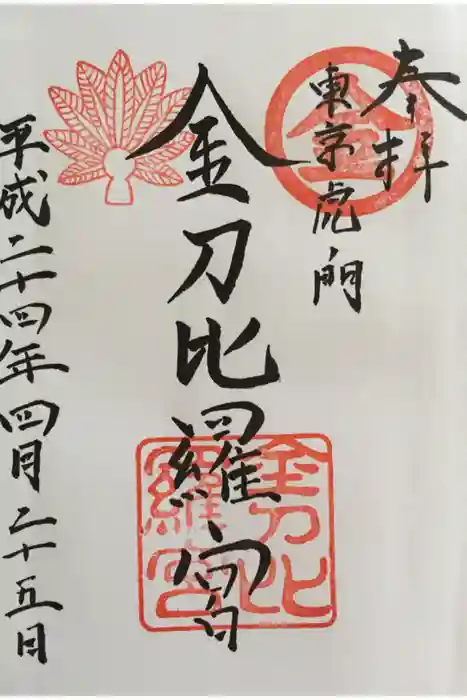 奉拝
東京虎ノ門
金刀比羅宮
平成二十四年四月二十五日
金
金刀比羅宮